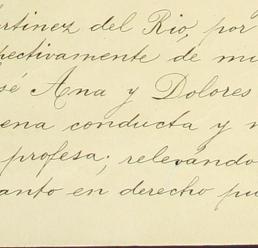 rtinez del Rio, por
pectivamente de mi
sé Ana y Dolores
ena conducta y n
profesa; relevando
anto en derecho pu